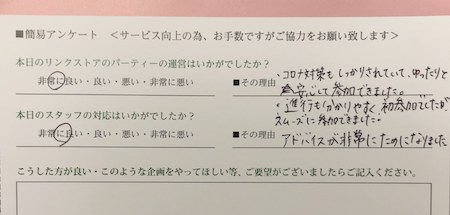 ■簡易アンケート ＜サービス向上の為、お手数ですがご協力をお願い致します＞
本日のリンクストアのパーティーの運営はいかがでしたか？
非常に良い・良い・悪い・非常に悪い
■その理由
・コロナ対策もしっかりされていて、ゆったりと
安心して参加できました。
・進行も分かりやすく初参加でしたが
スムーズに参加できました。
本日のスタッフの対応はいかがでしたか？
非常に良い・良い・悪い・非常に悪い
■その理由
アドバイスが非常にためになりました
こうした方が良い・このような企画をやってほしい等、ご要望がございましたらご記入ください。